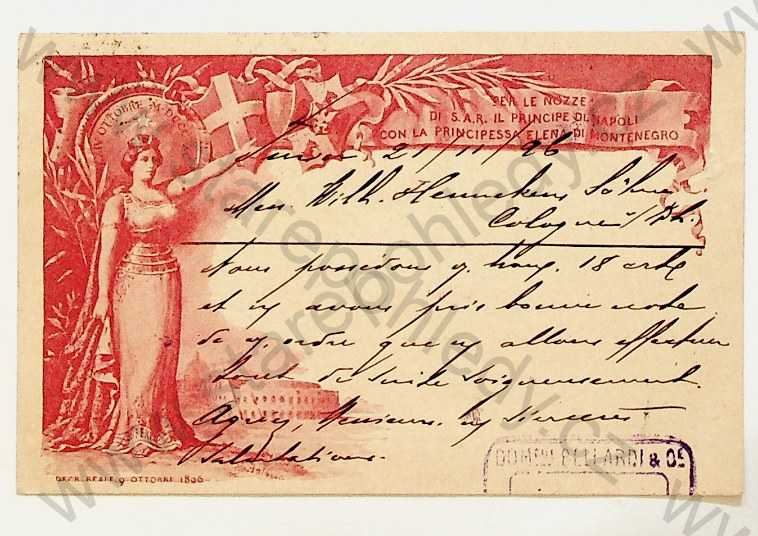 XXIV OTTOBRE M.D.C.C.
PER LE NOZZE
DI S.A.R. IL PRINCIPE DI NAPOLI
CON LA PRINCIPESSA ELENA DI MONTENEGRO
21/11/96
Mess. Wilh. Hennekens Söhne
Cologne s/Rh.
Nous possédons v. hon. 18 ct
et y avons pris bonne note
de v. ordre que ns allons effectuer
tout de suite soigneusement.
Agréez, Messieurs, ns sincères
Salutations.
DOMCO BELLARDI & Co
DECR. REALE 9 OTTOBRE 1896
www.starepohledy.cz